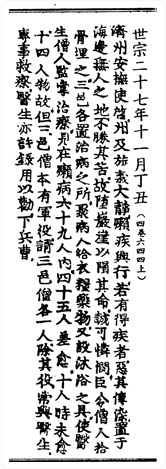 世宗二十七年十一月丁丑（四卷六四四上）
濟州安撫使啓州及旌義大靜癩疾興行若有得疾者惡其傳染置于
海邊無人之地不勝其苦故墮巖崖以隕其命誠可憐閔臣令僧人拾
骨埋之三邑各置治病之所聚病人給衣粮藥物又設沐浴之具使醫
生僧人監掌治療見在癩病六十九人內四十五人差愈十人時未愈
十四人物故但三邑僧本有軍役請三邑僧各一人除其役常與醫生
專事救療醫生亦許錄用以勸下兵曹